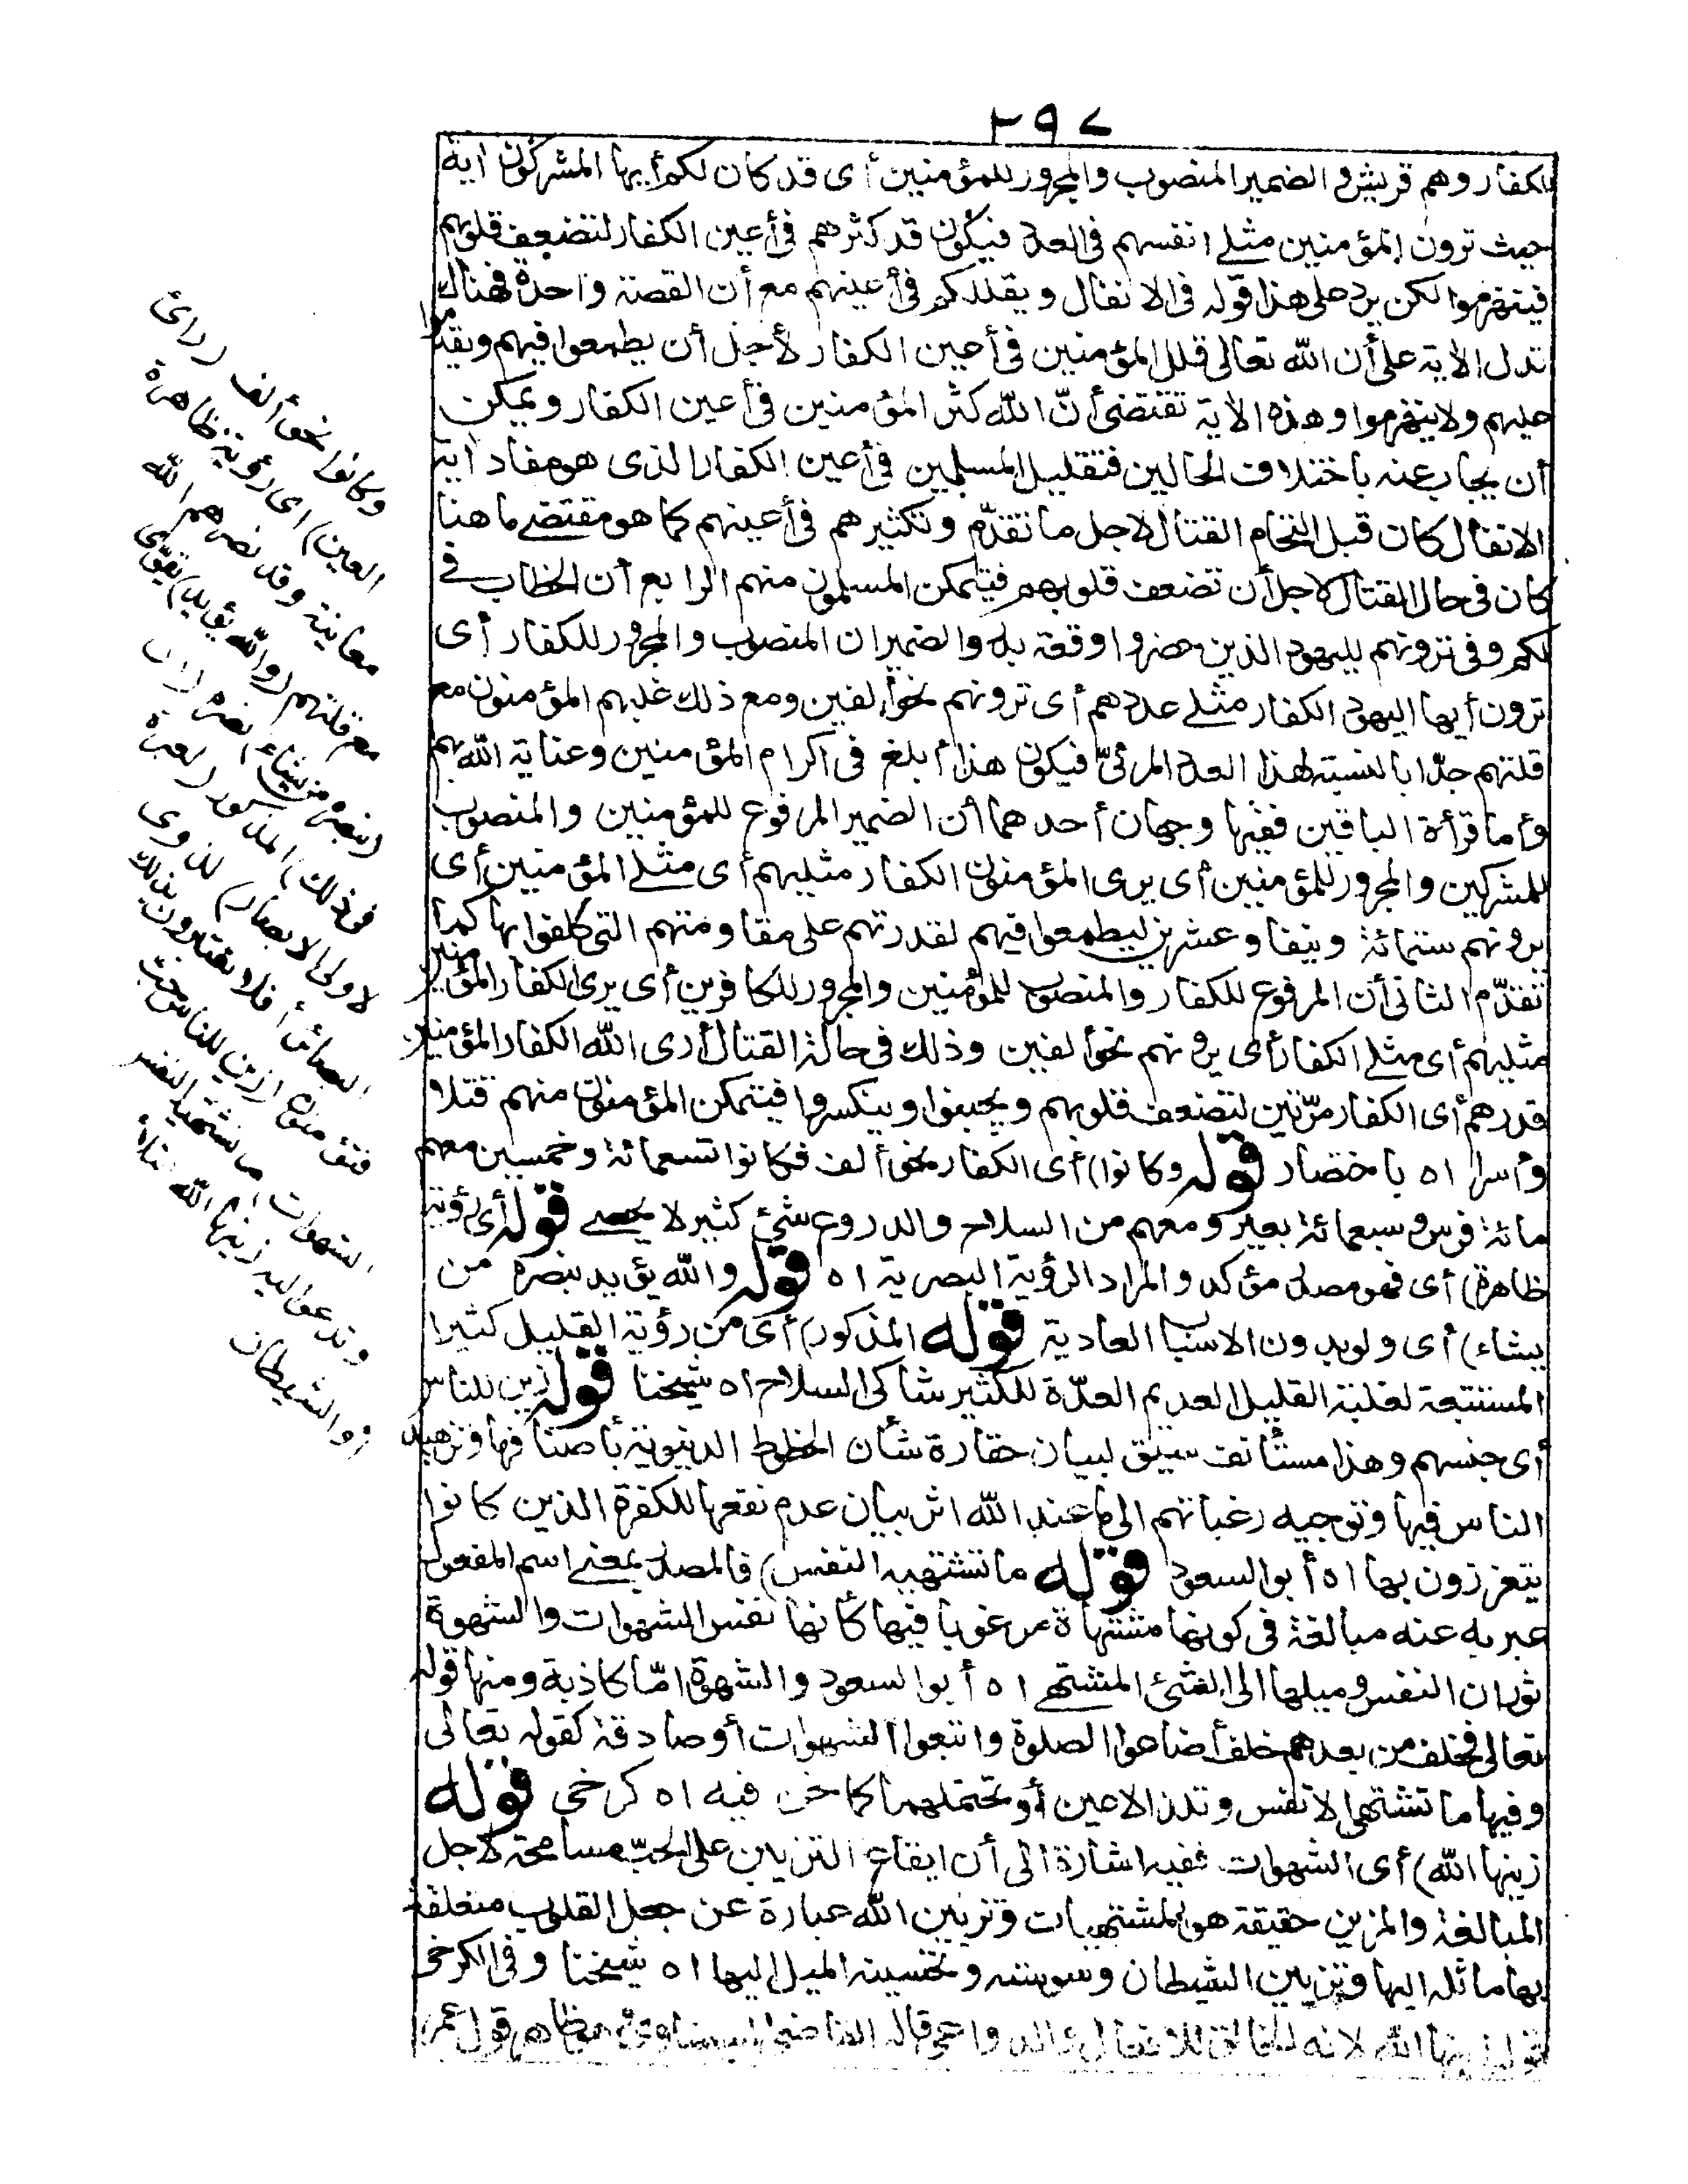 ٢٩٧
للكفار وهم قريش والضمير المنصوب والمجرور للمؤمنين أى قد كان لكم أيها المشركون آية
حيث ترون المؤمنين مثلى انفسهم فى العدد فيكون قد كثرهم فى أعين الكفار لتضعف قلوبهم
فينهزموا لكن يرد على هذا قوله فى الانفال ويقللكم فى أعينهم مع أن القصة واحدة فهناك
تدل الاية على أن الله تعالى قلل المؤمنين فى أعين الكفار لأجل أن يطمعوا فيهم ويقدموا
عليهم ولا ينهزموا وهذه الاية تقتضى أنّ الله كثر المؤمنين فى أعين الكفار ويمكن
أن يجاب عنه باختلاف الحالين فتقليل المسلمين فى أعين الكفار الذى هو مفاد آية
الانفال كان قبل التحام القتال لاجل ما تقدّم وتكثيرهم فى أعينهم كما هو مقتضى ما هنا
كان فى حال القتال لاجل أن تضعف قلوبهم فيتمكن المسلمون منهم الرابع أن الخطاب فى
لكم وفى ترونهم لليهود الذين حضروا وقعة بدر والضميران المنصوب والمجرور للكفار أى
ترون أيها اليهود الكفار مثلى عددهم أى ترونهم نحو ألفين ومع ذلك غلبهم المؤمنون مع
قلتهم جدّا بالنسبة لهذا العدد المرئىّ فيكون هذا أبلغ فى اكرام المؤمنين وعناية الله بهم
وأما قرأة الباقين ففيها وجهان أحدهما أن الضمير المرفوع للمؤمنين والمنصوب
للمشركين والمجرور للمؤمنين أى يرى المؤمنون الكفار مثليهم أى مثلى المؤمنين أى
يرونهم ستمائة ونيفا وعشرين ليطمعوا فيهم لقدرتهم على مقاومتهم التى كلفوا بها كما
تقدّم الثانى أن المرفوع للكفار والمنصوب للمؤمنين والمجرور للكافرين أى يرى الكفار المؤمنين
مثليهم أى مثلى الكفار أى يرونهم نحو ألفين وذلك فى حالة القتال أرى الله الكفار المؤمنين
قدرهم أى الكفار مرّتين لتضعف قلوبهم ويجبنوا وينكسروا فيتمكن المؤمنون منهم قتلا
وأسرا اه باختصار قوله وكانوا) أى الكفار نحو ألف فكانوا تسعمائة وخمسين معهم
مائة فرس وسبعمائة بعير ومعهم من السلاح والدروع شئ كثير لا يحصى قوله أى رؤية
ظاهرة) أى فهو مصدر مؤكد والمراد الرؤية البصرية اه قوله والله يؤيد بنصره من
يشاء) أى ولو بدون الاسباب العادية قوله المذكور) أى من رؤية القليل كثيرا
المستتبعة لغلبة القليل العديم العدّة للكثير شاكى السلاح اه شيخنا قوله زين للناس
أى جنسهم وهذا مستأنف سيق لبيان حقارة شأن الحظوظ الدنيوية بأصنافها وتزهيد
الناس فيها وتوجيه رغباتهم الى ما عند الله اثر بيان عدم نفعها للكفرة الذين كانوا
يتعززون بها اه أبو السعود قوله ما تشتهيه النفس) فالمصدر بمعنى اسم المفعول
عبر به عنه مبالغة فى كونها مشتهاة مرغوبا فيها كأنها نفس الشهوات والشهوة
ثوران النفس وميلها الى الشئ المشتهى اه أبو السعود والشهوة امّا كاذبة ومنها قوله
تعالى فخلف من بعدهم خلف أضاعوا الصلوة واتبعوا الشهوات أو صادقة كقوله تعالى
وفيها ما تشتهى الانفس وتلذ الاعين أو تحتملهما كما نحن فيه اه كرخى قوله
زينها الله) أى الشهوات ففيه اشارة الى أن ايقاع التزيين على الحبّ مسامحة لاجل
المبالغة والمزين حقيقة هو المشتهيات وتزيين الله عبارة عن جعل القلوب متعلقة
بها مائلة اليها وتزيين الشيطان وسوسته وتحسينه الميل اليها اه شيخنا وفى الكرخى
قوله زينها الله لانه الخالق للافعال والدواعى قاله القاضى البيضاوى وظاهر قول عمر
وكانوا نحو ألف (رأى
العين) اى رؤية ظاهرة
معاينة وقد نصرهم الله
مع قلتهم (والله يؤيد) يقوّى
(بنصره من يشاء) نصره (ان
فى ذلك) المذكور (لعبرة
لاولى الابصار) لذوى
البصائر أفلا تعتبرون بذلك
فتؤمنون (زين للناس حب
الشهوات) ما تشتهيه النفس
وتدعو اليه زينها الله ابتلاء
أو الشيطان